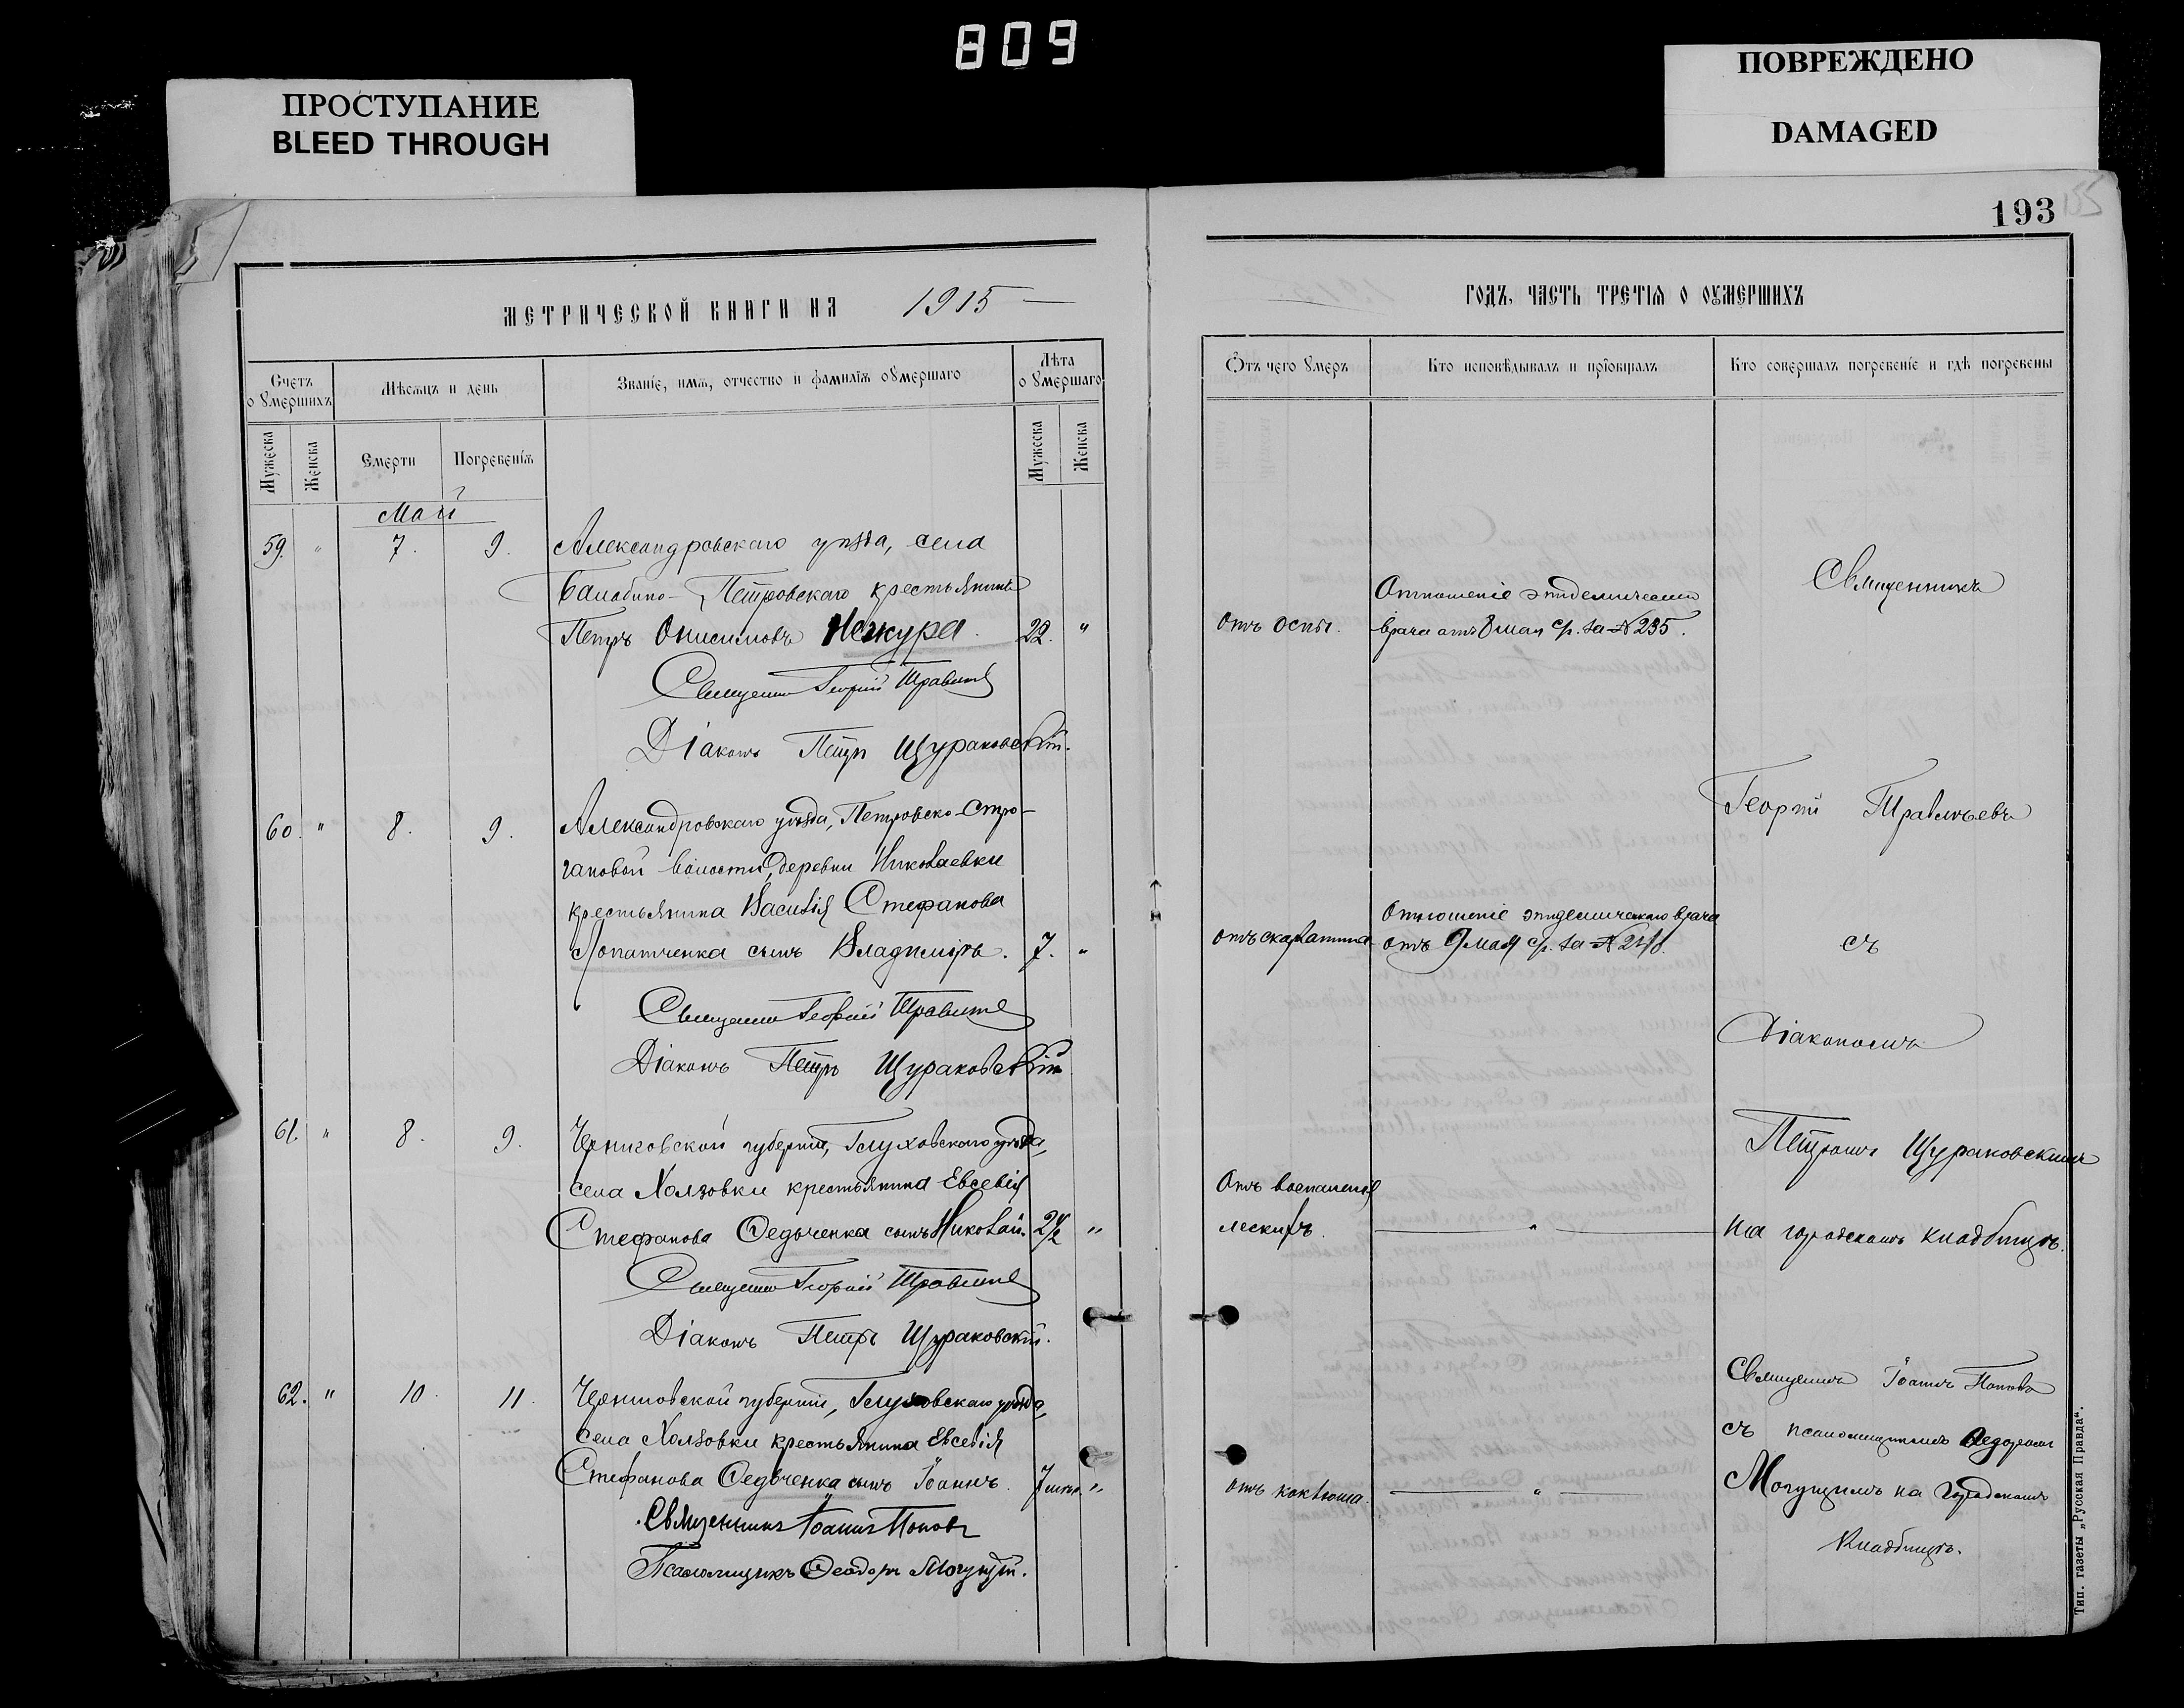 809
ПРОСТУПАНИЕ
BLEED THROUGH
ПОВРЕЖДЕНО
DAMAGED
193
МЕТРИЧЕСКОЙ КНИГИ НА 1915
Счетъ о умершихъ
Мѣсяцъ и день
Званіе, имя, отчество и фамилія оумершаго
Лѣта оумершаго
Мужеска
Женска
Смерти
Погребенія
Мужеска
Женска
Май
59. " 7. 9. Александровскаго уѣзда, села
Балабино-Петровскаго крестьянинъ
Петръ Онисимовъ Нежура. 22. "
Священникъ Георгій
Діаконъ Петръ Щураковскій.
60. " 8. 9. Александровскаго уѣзда, Петровско-Стро-
гановой волости, деревни Николаевки
крестьянина Василія Стефанова
Лопатченка сынъ Владиміръ. 7. "
Священникъ Георгій
Діаконъ Петръ Щураковскій
61. " 8. 9. Черниговской губерніи, Глуховскаго уѣзда,
села Холзовки крестьянина Евсевія
Стефанова Ѳедьченка сынъ Николай. 2½ "
Священникъ Георгій
Діаконъ Петръ Щураковскій.
62. " 10. 11. Черниговской губерніи, Глуховскаго уѣзда,
села Холзовки крестьянина Евсевія
Стефанова Ѳедьченка сынъ Іоаннъ. 7 "
Священникъ Іоаннъ Поповъ
Псаломщикъ Ѳеодоръ Могущій.
ГОДЪ, ЧАСТЬ ТРЕТІЯ О ОУМЕРШИХЪ
Отъ чего умеръ
Кто исповѣдывалъ и пріобщалъ
Кто совершалъ погребеніе и гдѣ погребены
Отъ оспы.
Отношеніе эпидемическаго
врача отъ 8 мая с/г. за № 235.
отъ скарлатины
Отношеніе эпидемическаго врача
отъ 9 мая с/г. за №
Отъ воспаленія
легкихъ.
"
отъ коклюша.
"
Священникъ
Георгій Травльевъ
съ
Діакономъ
Петромъ Щураковскимъ
на городскомъ кладбищѣ.
Священникъ Іоаннъ Поповъ
съ псаломщикомъ Ѳедоромъ
Могущимъ на городскомъ
кладбищѣ.
Тип. газеты „Русская Правда“.